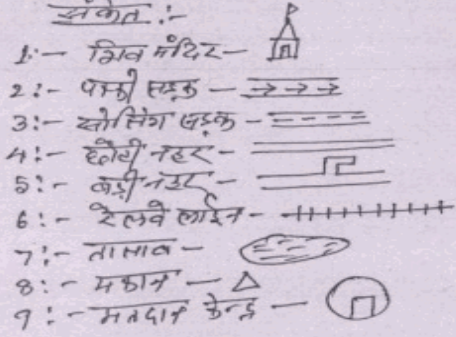 संकेत :-
1:- शिव मंदिर -
2:- पक्की सड़क -
3:- सोलिंग सड़क -
4:- छोटी नहर -
5:- बड़ी नहर -
6:- रेलवे लाईन -
7:- तालाब -
8:- मकान -
9:- मतदान केन्द्र -